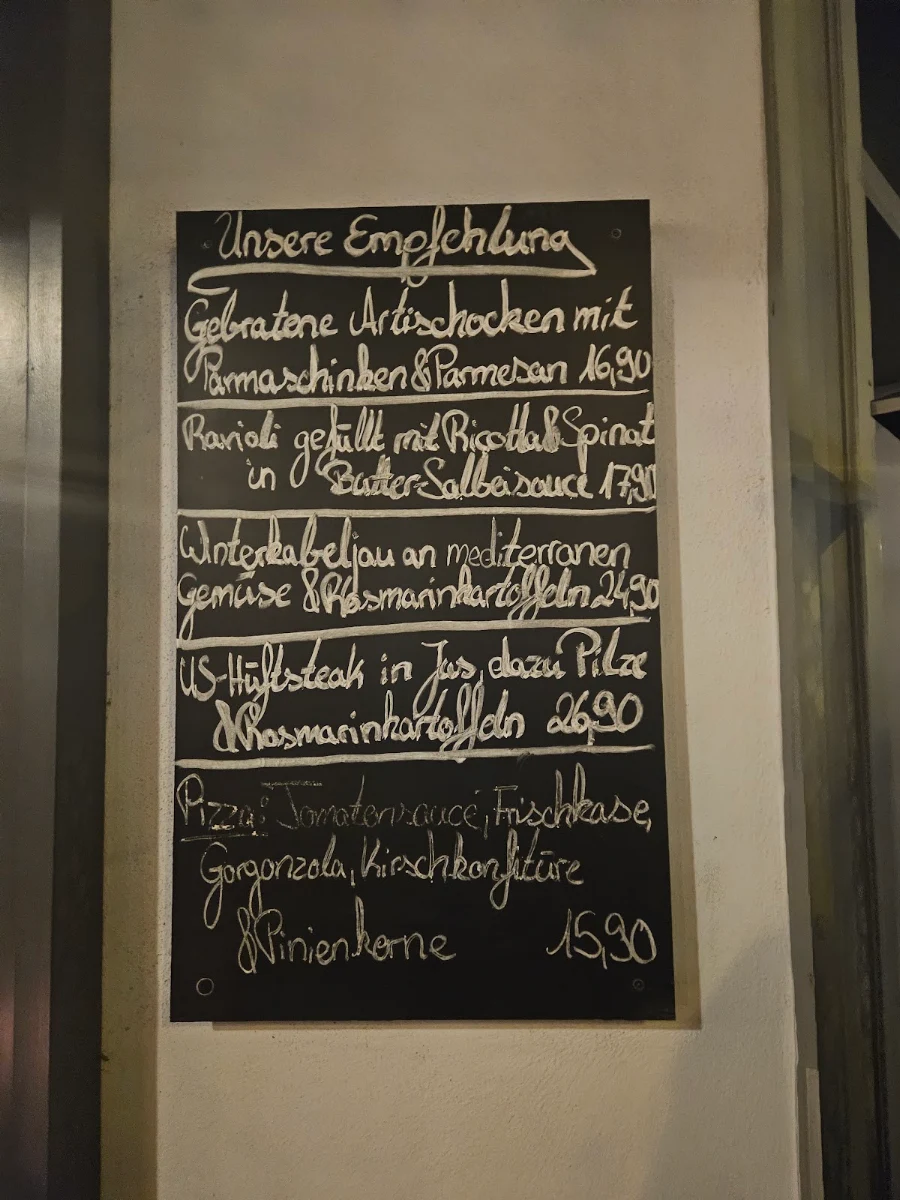 Unsere Empfehlung
Gebratene Artischocken mit
Parmaschinken & Parmesan 16,90
Ravioli gefüllt mit Ricotta & Spinat
in Butter-Salbeisauce 17,90
Winterkabeljau an mediterranen
Gemüse & Rosmarinkartoffeln 24,90
US-Hüftsteak in Jus, dazu Pilze
& Rosmarinkartoffeln 26,90
Pizza: Tomatensauce, Frischkäse,
Gorgonzola, Kirschkonfitüre
& Pinienkerne 15,90